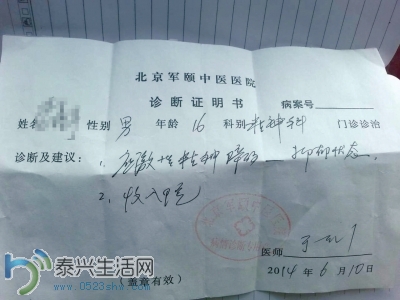 北京军颐中医医院
诊断证明书 病案号
姓名 性别 男 年龄 16 科别 精神科 门诊诊治
诊断及建议：1、应激性精神障碍——抑郁状态
2、收入
医师
（盖章有效） 2014年6月10日
泰兴生活网
www.0523shw.com